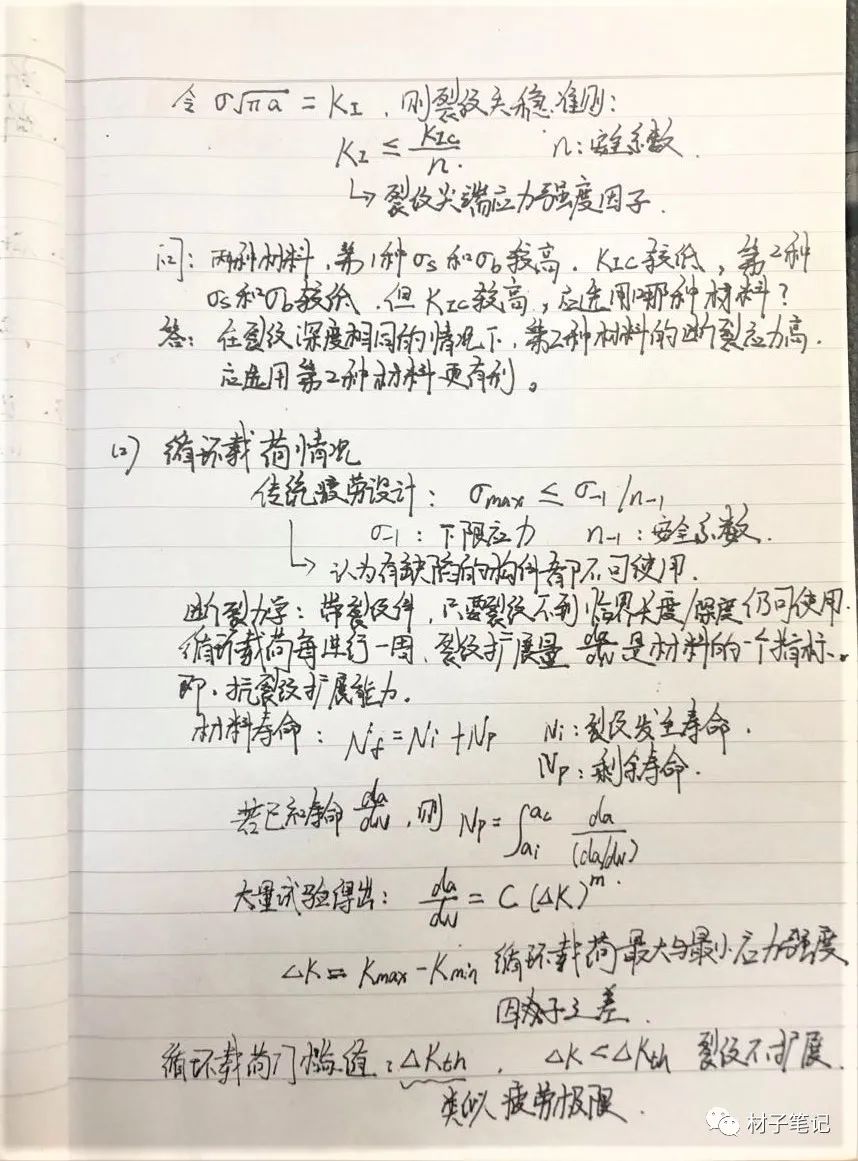 令 σ√πa = KI ，则裂纹失稳准则：
KI ≤ KIC/n. n：安全系数.
↳ 裂纹尖端应力强度因子.
问：两种材料，第1种σs和σb较高．KIC较低，第2种
σs和σb较低，但KIC较高，应选用哪种材料？
答：在裂纹深度相同的情况下，第2种材料的断裂应力高．
应选用第2种材料更有利。
(2) 循环载荷情况
传统疲劳设计：σmax ≤ σ-1/n-1
σ-1：下限应力 n-1：安全系数.
↳ 认为有缺陷的构件都不可使用．
断裂力学：带裂纹件，只要裂纹不到临界长度/深度仍可使用．
循环载荷每进行一周，裂纹扩展量 da/dN 是材料的一个指标。
即，抗裂纹扩展能力．
材料寿命：Nf = Ni + Np Ni：裂纹发生寿命．
Np：剩余寿命．
若已知寿命 da/dN，则 Np = ∫ai ac da/(da/dN)
大量试验得出：da/dN = C (ΔK)^m．
ΔK = Kmax - Kmin 循环载荷最大与最小应力强度
因子之差．
循环载荷门槛值：ΔKth ， ΔK < ΔKth 裂纹不扩展．
类似疲劳极限．
材子笔记